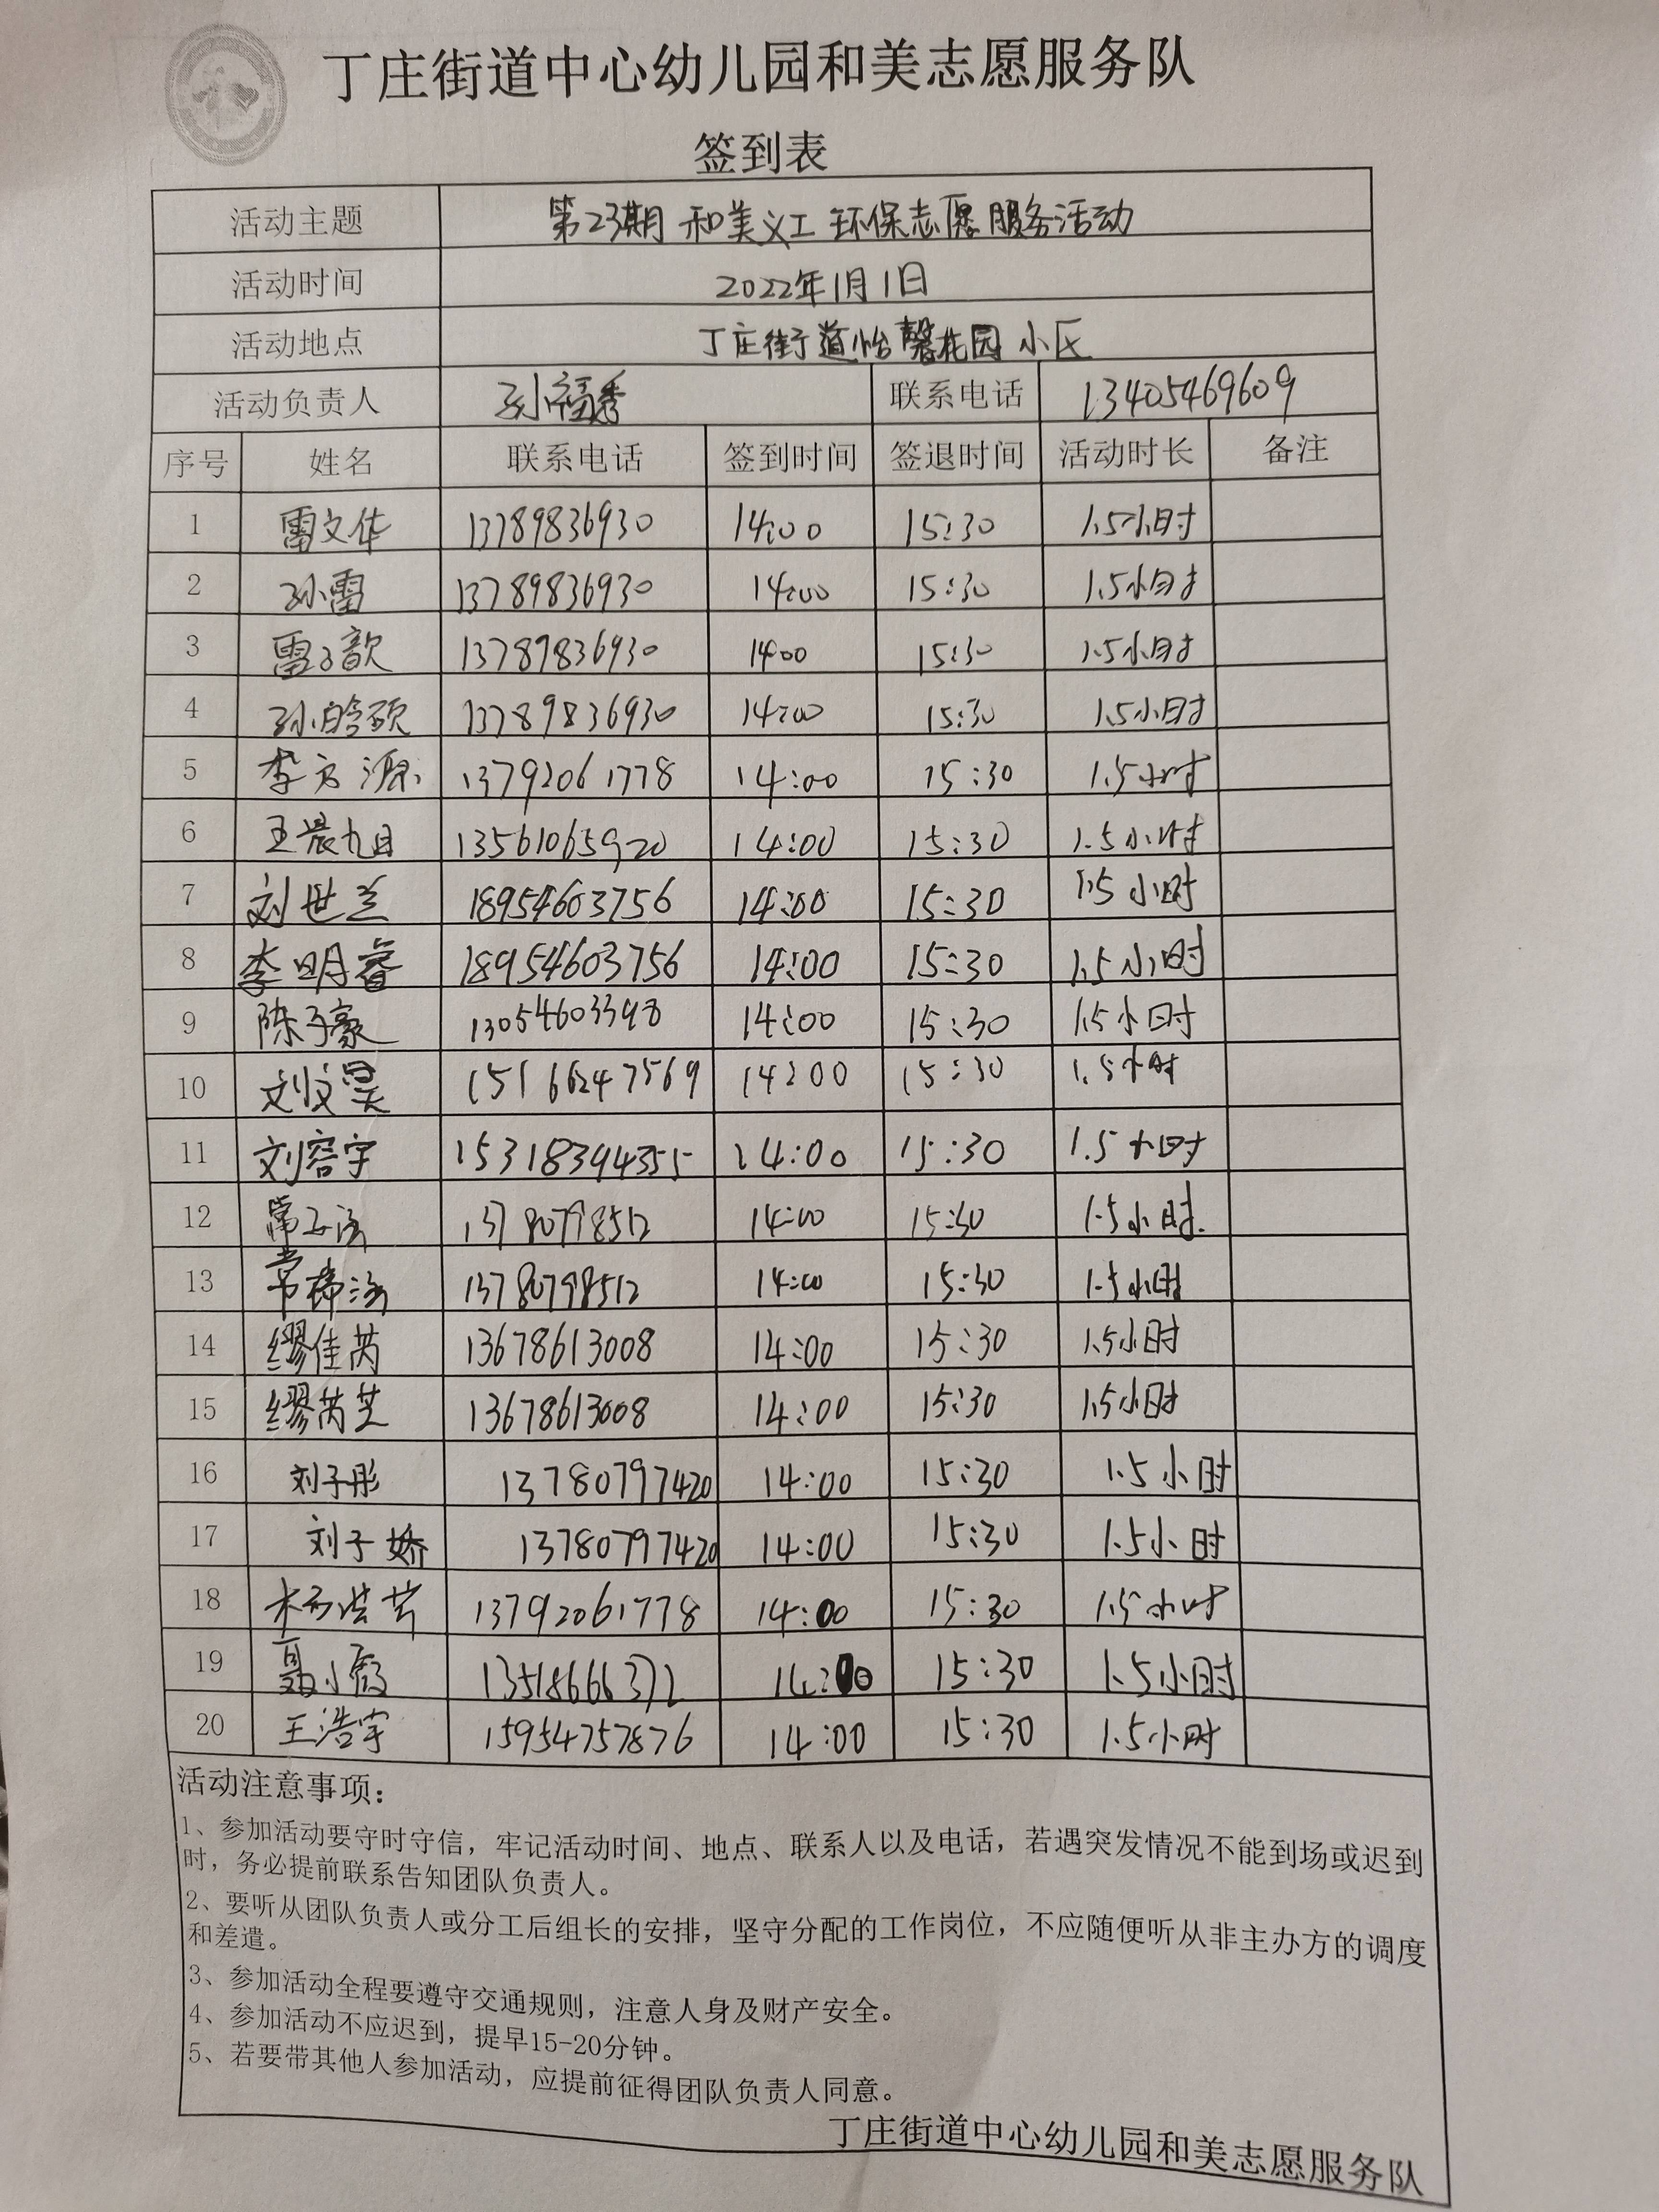 丁庄街道中心幼儿园和美志愿服务队
签到表
活动主题 第23期 和美义工 环保志愿服务活动
活动时间 2022年1月1日
活动地点 丁庄街道怡馨花园小区
活动负责人 孙福秀 联系电话 13405469609
序号 姓名 联系电话 签到时间 签退时间 活动时长 备注
1 雷文华 13789836930 14:00 15:30 1.5小时
2 孙雷 13789836930 14:00 15:30 1.5小时
3 雷子歆 13789836930 14:00 15:30 1.5小时
4 孙皓硕 13789836930 14:00 15:30 1.5小时
5 李方源 13792061778 14:00 15:30 1.5小时
6 王晨旭 13561065920 14:00 15:30 1.5小时
7 刘世兰 18954603756 14:00 15:30 1.5小时
8 李明睿 18954603756 14:00 15:30 1.5小时
9 陈子豪 13054603398 14:00 15:30 1.5小时
10 刘文昊 15166247569 14:00 15:30 1.5小时
11 刘容宇 15318394355 14:00 15:30 1.5小时
12 常子涵 13780798512 14:00 15:30 1.5小时
13 13780798512 14:00 15:30 1.5小时
14 缪佳芮 13678613008 14:00 15:30 1.5小时
15 缪芮芝 13678613008 14:00 15:30 1.5小时
16 刘子彤 13780797420 14:00 15:30 1.5小时
17 刘子娇 13780797420 14:00 15:30 1.5小时
18 13792061778 14:00 15:30 1.5小时
19 聂小霞 13518666372 14:00 15:30 1.5小时
20 王浩宇 15954757876 14:00 15:30 1.5小时
活动注意事项：
1、参加活动要守时守信，牢记活动时间、地点、联系人以及电话，若遇突发情况不能到场或迟到
时，务必提前联系告知团队负责人。
2、要听从团队负责人或分工后组长的安排，坚守分配的工作岗位，不应随便听从非主办方的调度
和差遣。
3、参加活动全程要遵守交通规则，注意人身及财产安全。
4、参加活动不应迟到，提早15-20分钟。
5、若要带其他人参加活动，应提前征得团队负责人同意。
丁庄街道中心幼儿园和美志愿服务队